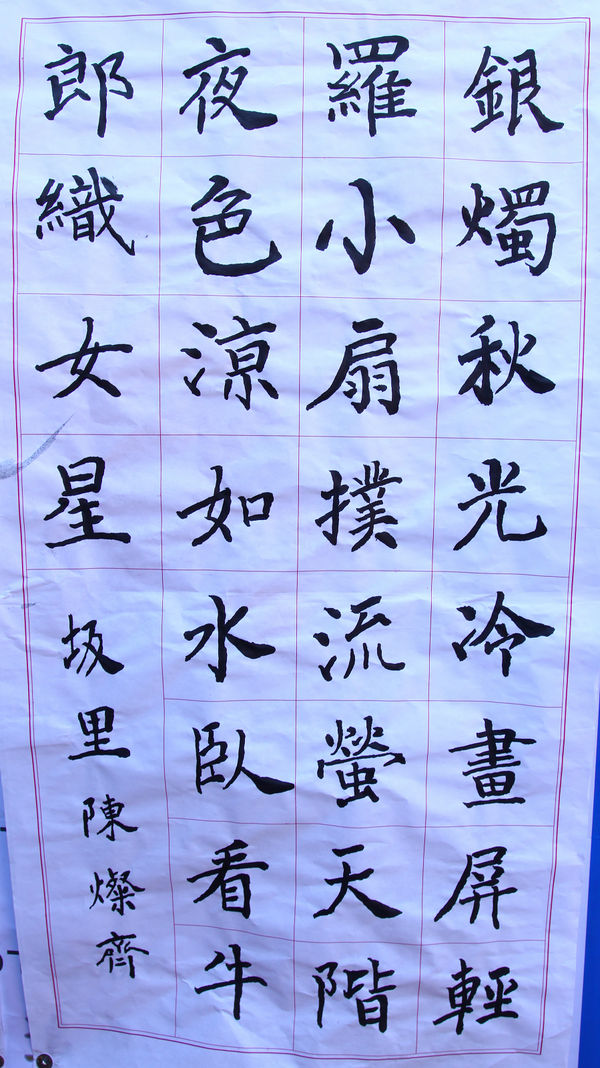 銀燭秋光冷畫屏輕
羅小扇撲流螢天階
夜色涼如水臥看牛
郎織女星
坂里陳燦齊